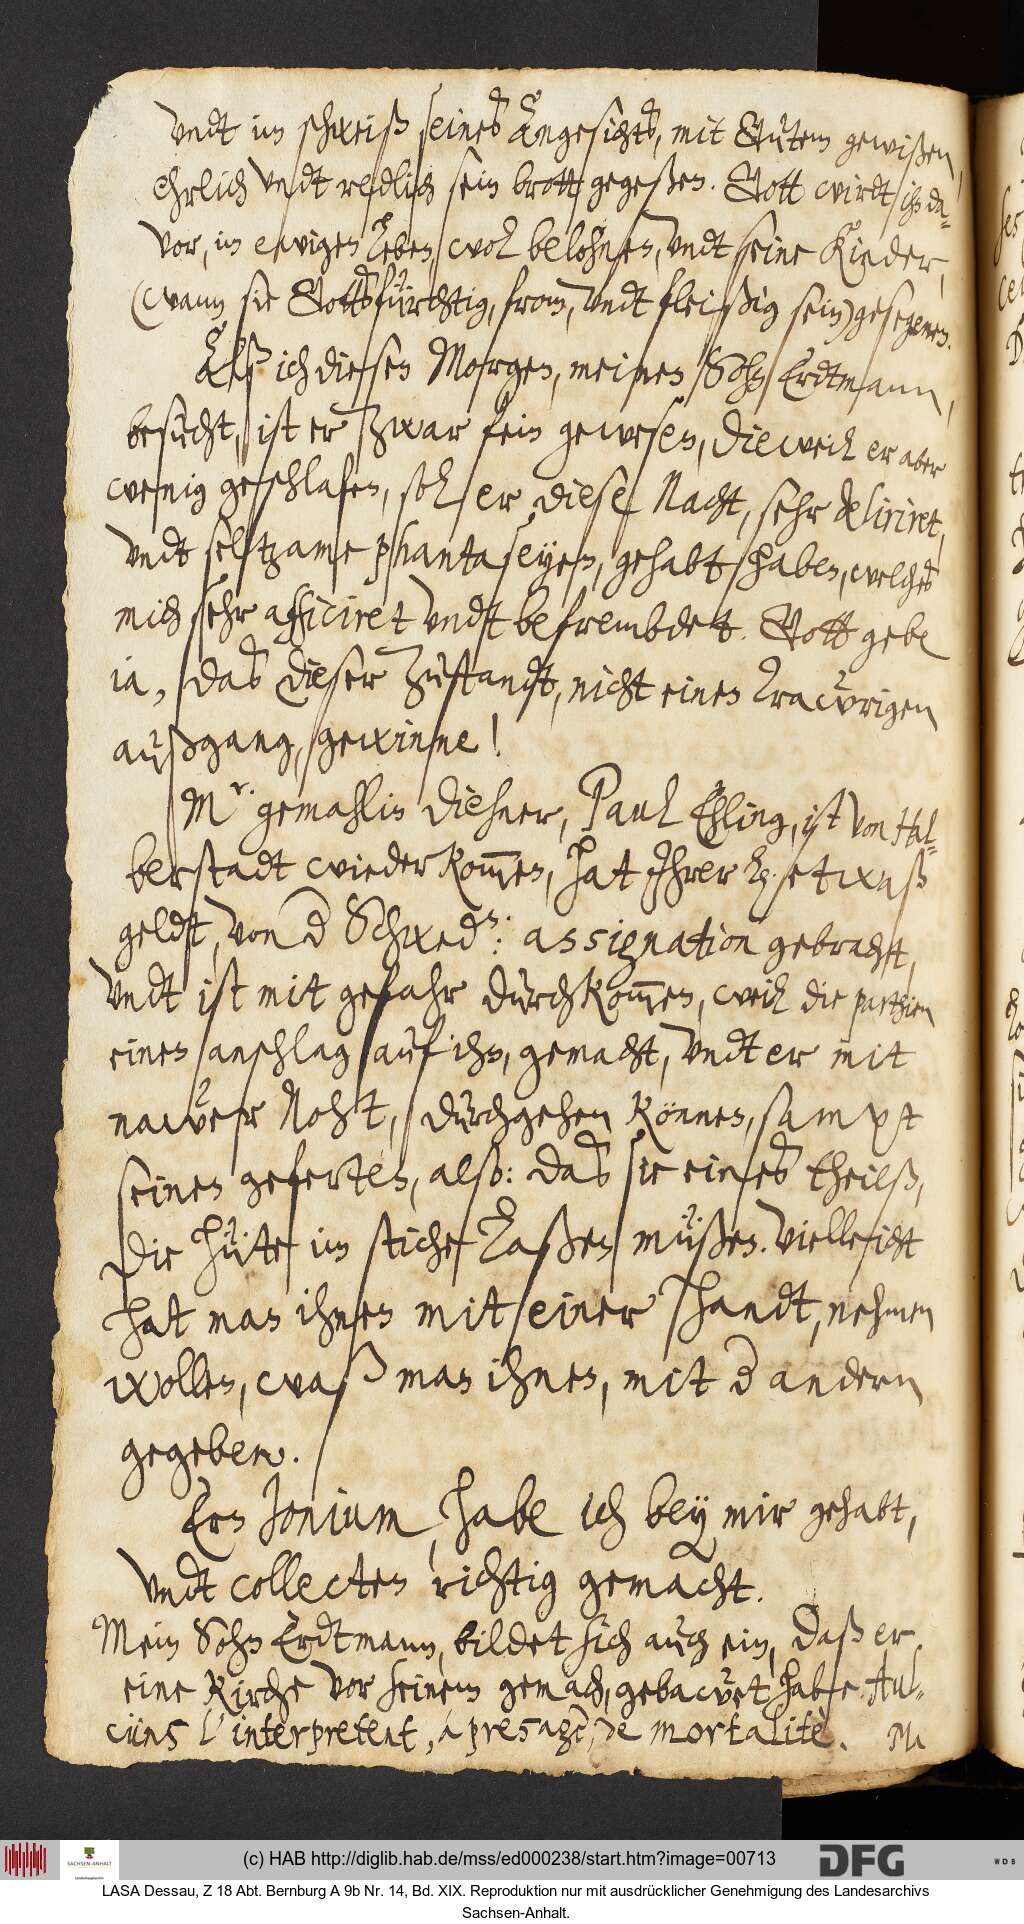 undt im schweiß seines Angesichts, mit Gutem gewißen,
ehrlich undt redlich sein brott gegeßen. Gott wirdt ihn da-
vor, im ewigen Leben, wol belohnen, undt seine Kinder,
(wann sie Gottsfürchtig, from, undt fleißig sein) gesegenen.
Alß ich diesen Morgen, meinen Sohn Erdtmann,
besucht, ist er zwar fein gewesen, dieweil er aber
wenig geschlafen, sol er diese Nacht, sehr deliriret,
undt seltzame phantaseyen, gehabt haben, welches
mich sehr afficiret undt befrembdet. Gott gebe
ia, das dieser zustandt, nicht einen trawrigen
außgang, gewinne!
Mr. gemahlin diehner, Paul Ehling, ist von Hal-
berstadt wieder kommen, hat Ihrer L. etwaß
geldt, von d Schwedn: assignation gebracht,
undt ist mit gefahr durchkommen, weil die parthien
einen anschlag auf ihn, gemacht, undt er mit
nawer Noht, durchgehen können, sampt
seinen geferten, also: das sie eines theilß,
die hüte im stiche laßen müßen. Vielleicht
hat man ihnen mit einer handt, nehmen
wollen, waß man ihnen, mit d andern
gegeben.
Ern Jonium, habe ich bey mir gehabt,
undt collecten richtig gemacht.
Mein Sohn Erdtmann, bildet sich auch ein, daß er
eine Kirche vor seinem gemach, gebawet habe. Aul-
cuns l'interpretent, à presage, de mortalitè. M
(c) HAB http://diglib.hab.de/mss/ed000238/start.htm?image=00713
SACHSEN-ANHALT
DFG
WDB
LASA Dessau, Z 18 Abt. Bernburg A 9b Nr. 14, Bd. XIX. Reproduktion nur mit ausdrücklicher Genehmigung des Landesarchivs
Sachsen-Anhalt.